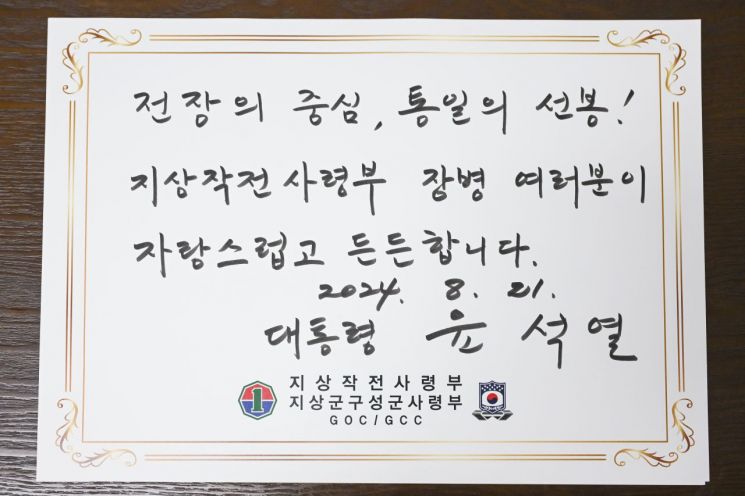 전장의 중심, 통일의 선봉!
지상작전사령부 장병 여러분이
자랑스럽고 든든합니다.
2024. 8. 21.
대통령 윤석열
1
지상작전사령부
지상군구성군사령부
GOC/GCC